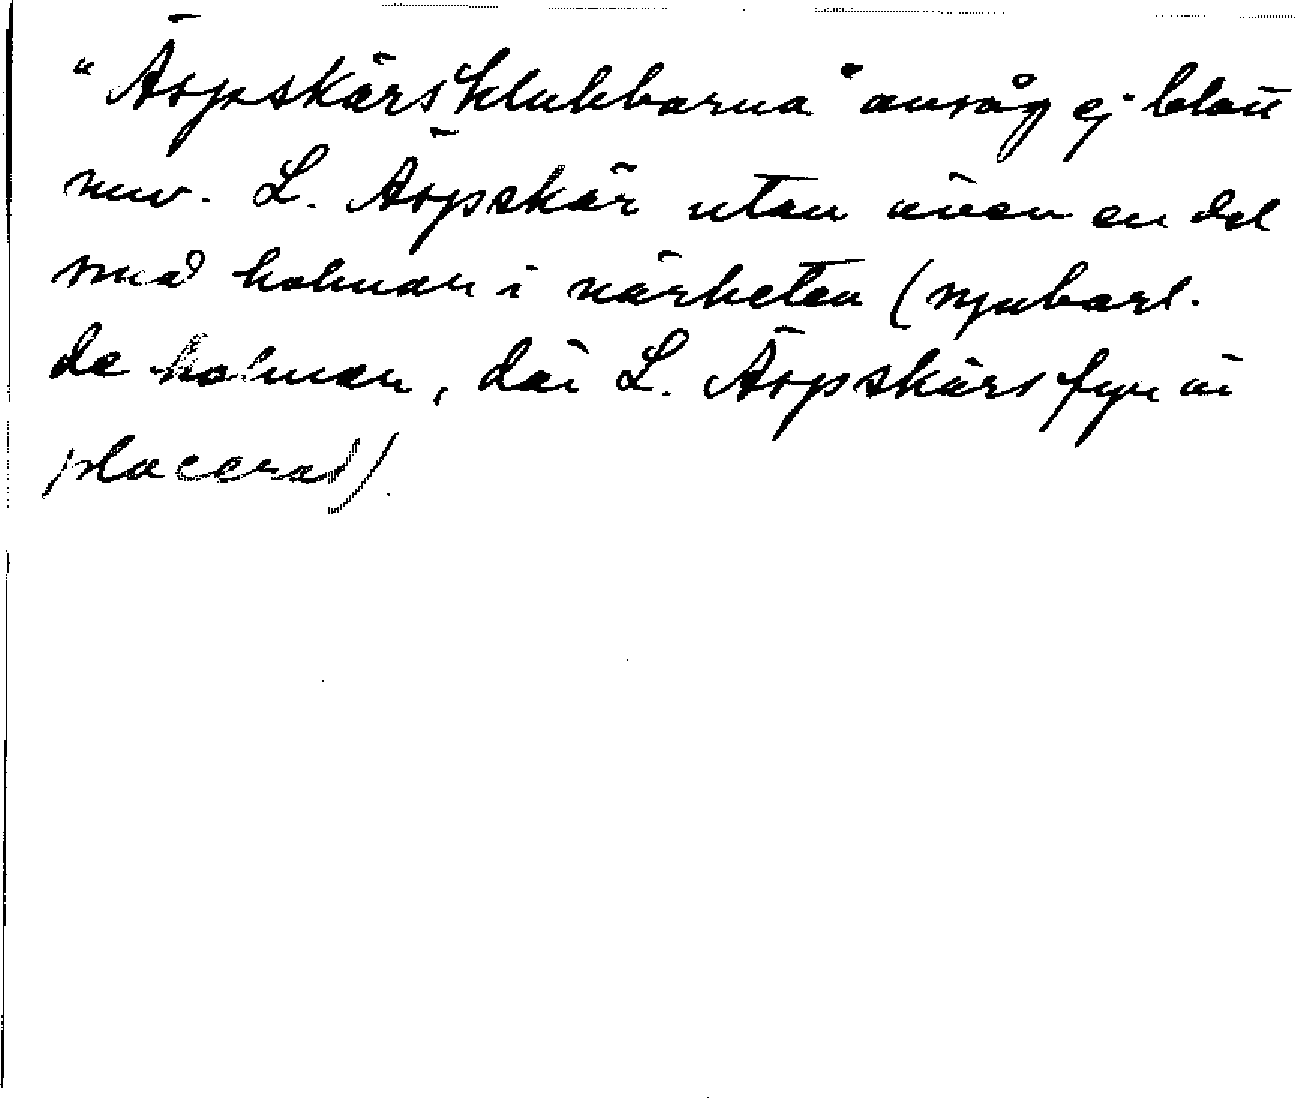 "Äspskärsklubbarna" ansåg ej blott
nuv. L. Äspskär utan även en del
små holmar i närheten (synbarl.
de holmar, där L. Äspskärs fyr är
placerad).